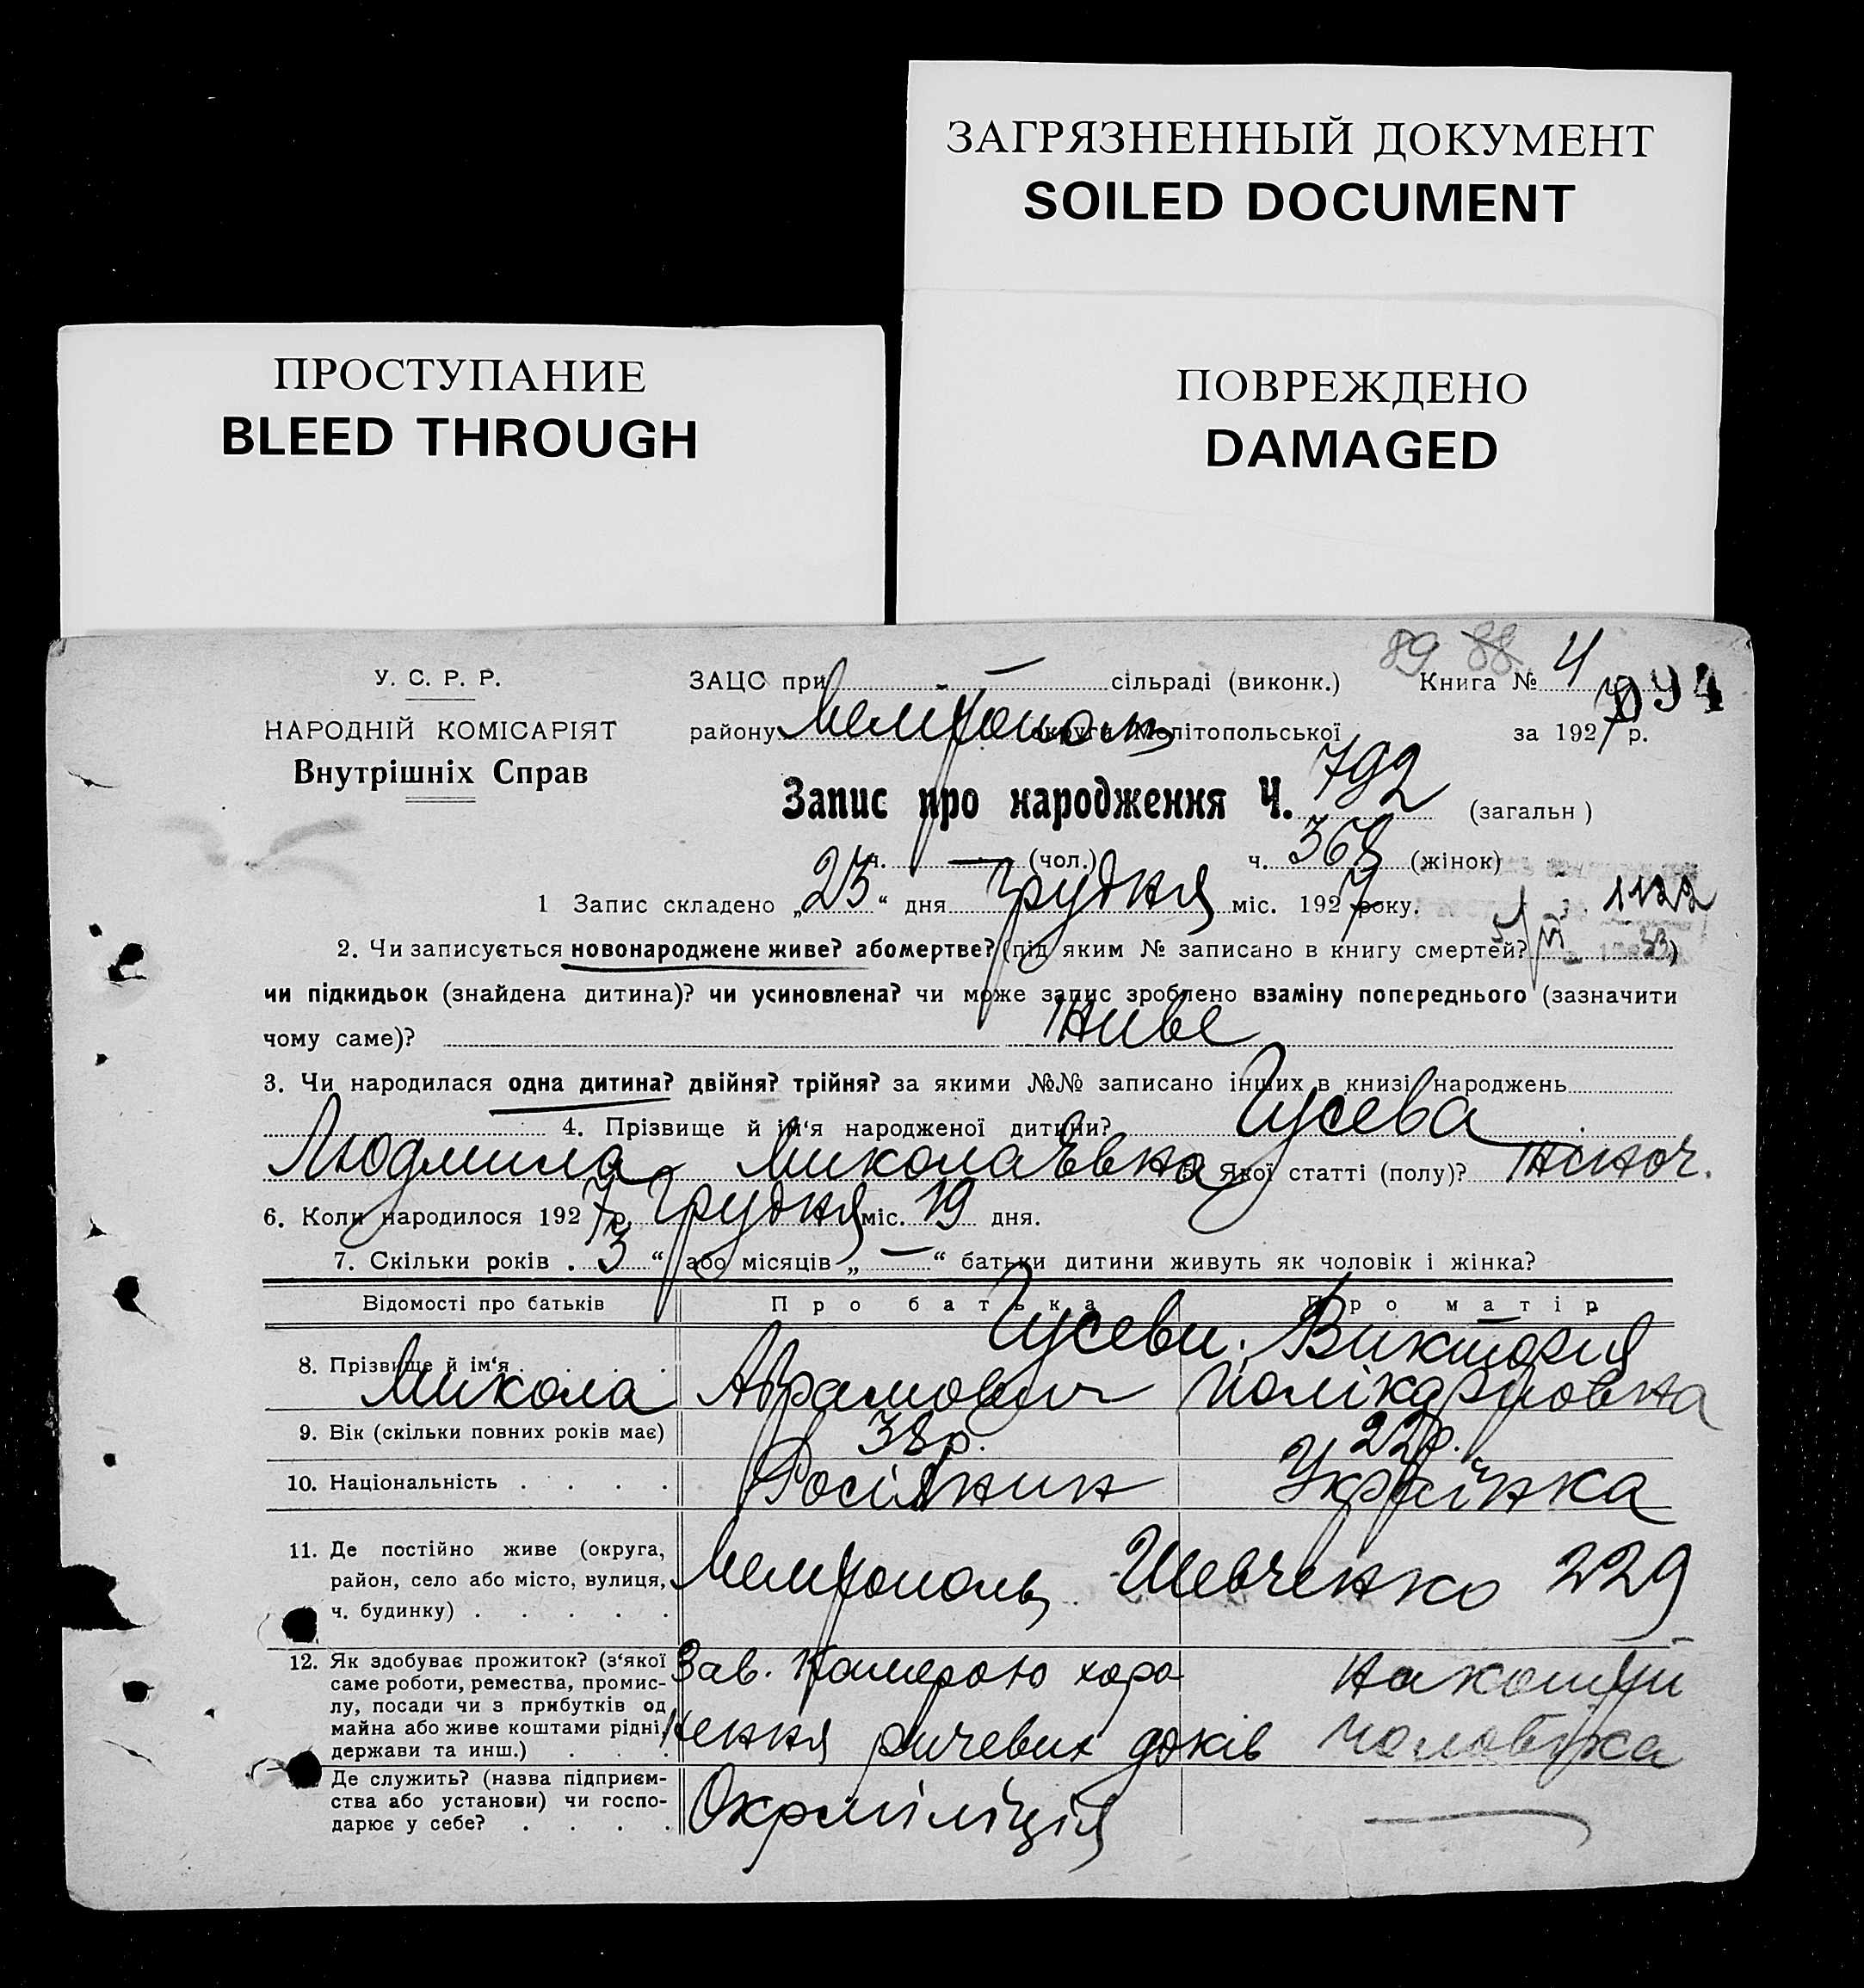 ЗАГРЯЗНЕННЫЙ ДОКУМЕНТ
SOILED DOCUMENT
ПРОСТУПАНИЕ
BLEED THROUGH
ПОВРЕЖДЕНО
DAMAGED
89 88
У. С. Р. Р.
НАРОДНІЙ КОМІСАРІЯТ
Внутрішніх Справ
ЗАЦС при — сільраді (виконк.) Книга № 4
094
району Мелітополь округи Мелітопольської за 1927 р.
Запис про народження Ч. 792 (загальн)
ч. — (чол.) ч. 368 (жінок)
1 Запис складено „23“ дня Грудня міс. 1927 року.
1122
2. Чи записується новонароджене живе? або мертве? (під яким № записано в книгу смертей?)
чи підкидьок (знайдена дитина)? чи усиновлена? чи може запис зроблено взаміну попереднього (зазначити
чому саме)? Живе
3. Чи народилася одна дитина? двійня? трійня? за якими №№ записано інших в книзі народжень
4. Прізвище й ім‘я народженої дитини? Гусева
Людмила Миколаєвна Якої статті (полу)? жіноч.
6. Коли народилося 1927 р. Грудня міс. 19 дня.
7. Скільки років „3“ або місяців „—“ батьки дитини живуть як чоловік і жінка?
Відомості про батьків Про батька Про матір
Гусеви. Викторія
8. Прізвище й ім‘я . . . .
Микола Абрамович Полікарповна
9. Вік (скільки повних років має) 38 р. 22 р.
10. Національність . . . . Росіянин Українка
11. Де постійно живе (округа, район, село або місто, вулиця, ч. будинку) . . . . .
Мелітополь, Шевченко 229
12. Як здобуває прожиток? (з‘якої саме роботи, ремества, промислу, посади чи з прибутків од майна або живе коштами рідні, держави та инш.) . . .
Зав. Камерою хоро
нення ричевих доків
на кошти
чоловіка
Де служить? (назва підприємства або установи) чи господарює у себе? . . . .
Окрміліція —